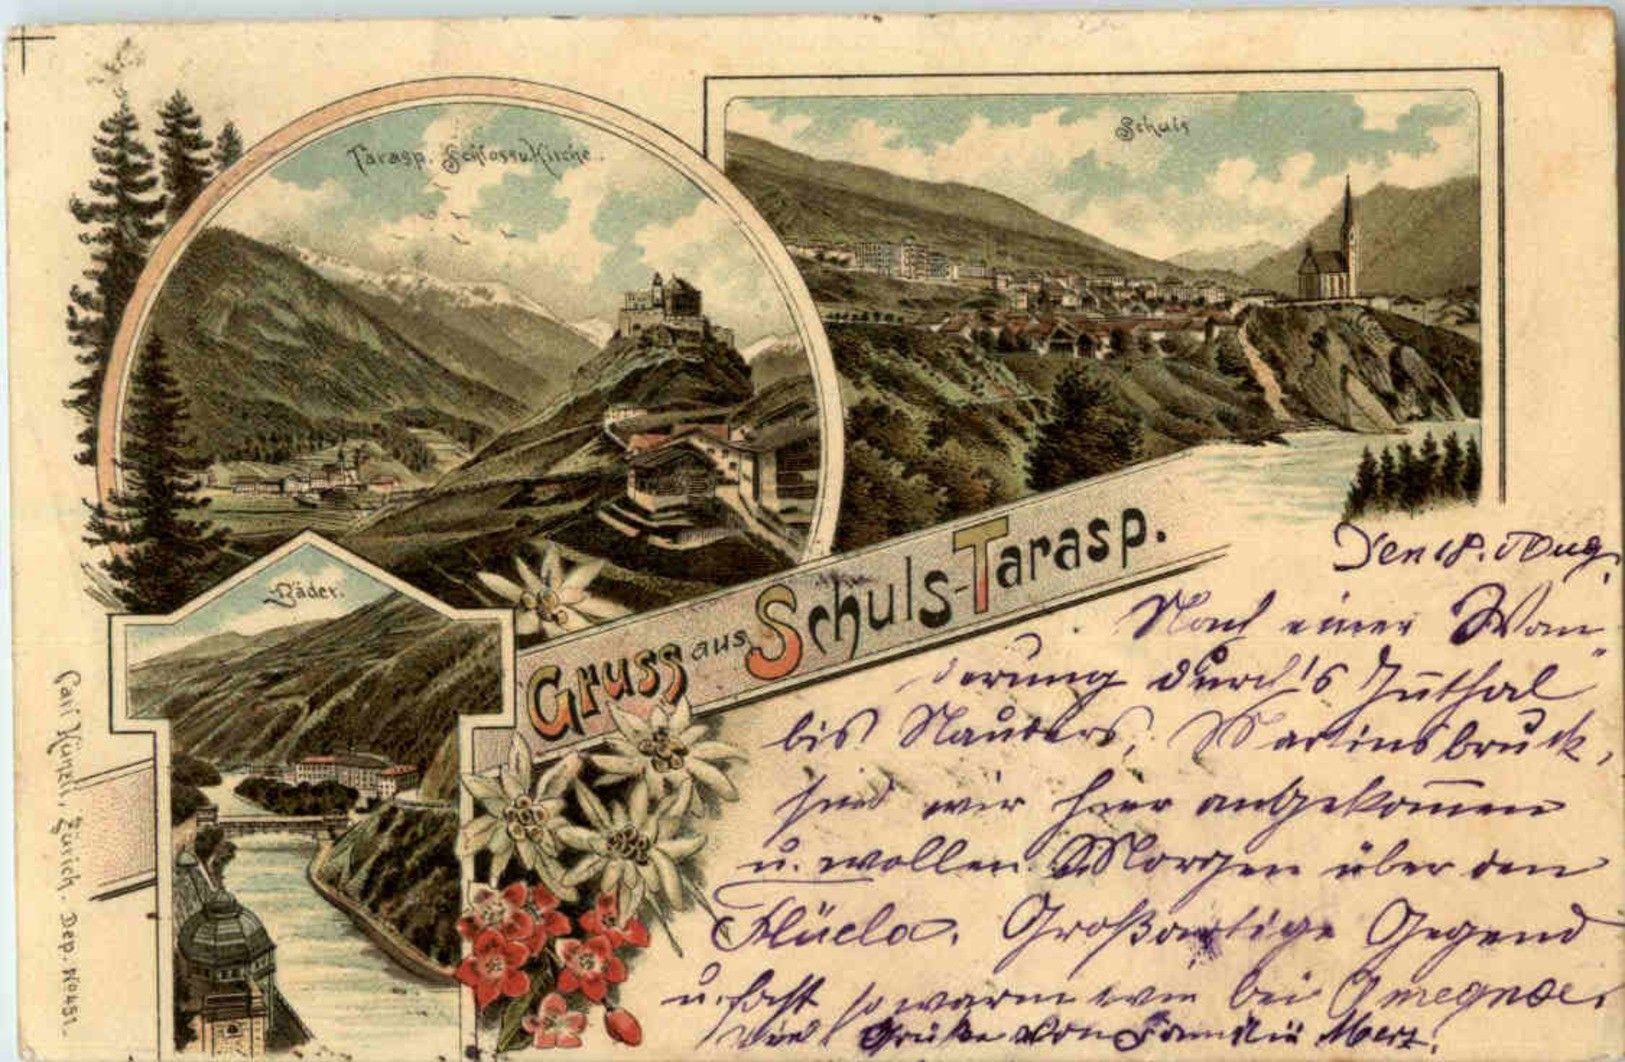 Tarasp. Schloss u. Kirche.
Schuls
Bäder.
Gruss aus Schuls-Tarasp.
Carl Künzli, Zürich. Dep. No 451.
Den 18. Aug.
Nach einer Wan
derung durch's
bis Nauders, Martinsbruck,
sind wir hier angekom̄en
u. wollen Morgen über den
Flüela. Großartige Gegend
u. fast so warm wie bei
Viel Grüße von Familie Merz.